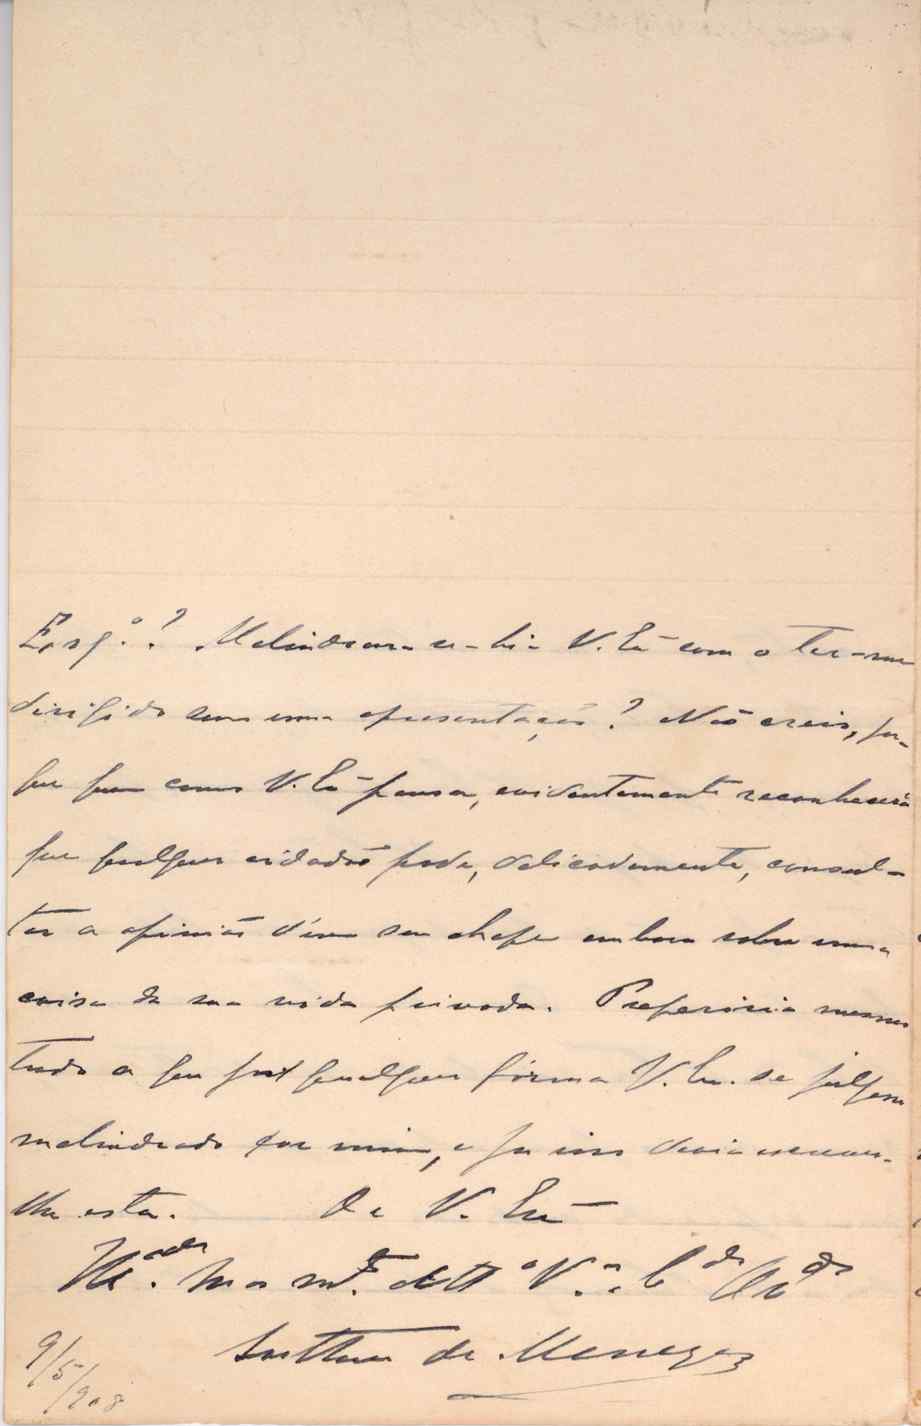 Melindrara-se-hia V. Exª com o ter-me
dirigido sem uma apresentação? Não creio, por-
que quem como V. Exª pensa, evidentemente reconhecerá
que qualquer cidadão pode, delicadamente, consul-
tar a opinião d'um seu chefe embora sobre uma
coisa da sua vida privada. Preferiria mesmo
tudo a que por qualquer fórma V. Ex. se julgasse
melindrado por mim, e por isso devia escrever-
lhe esta. De V. Exª
Vor. mto
Arthur de Menezes
9/5/908